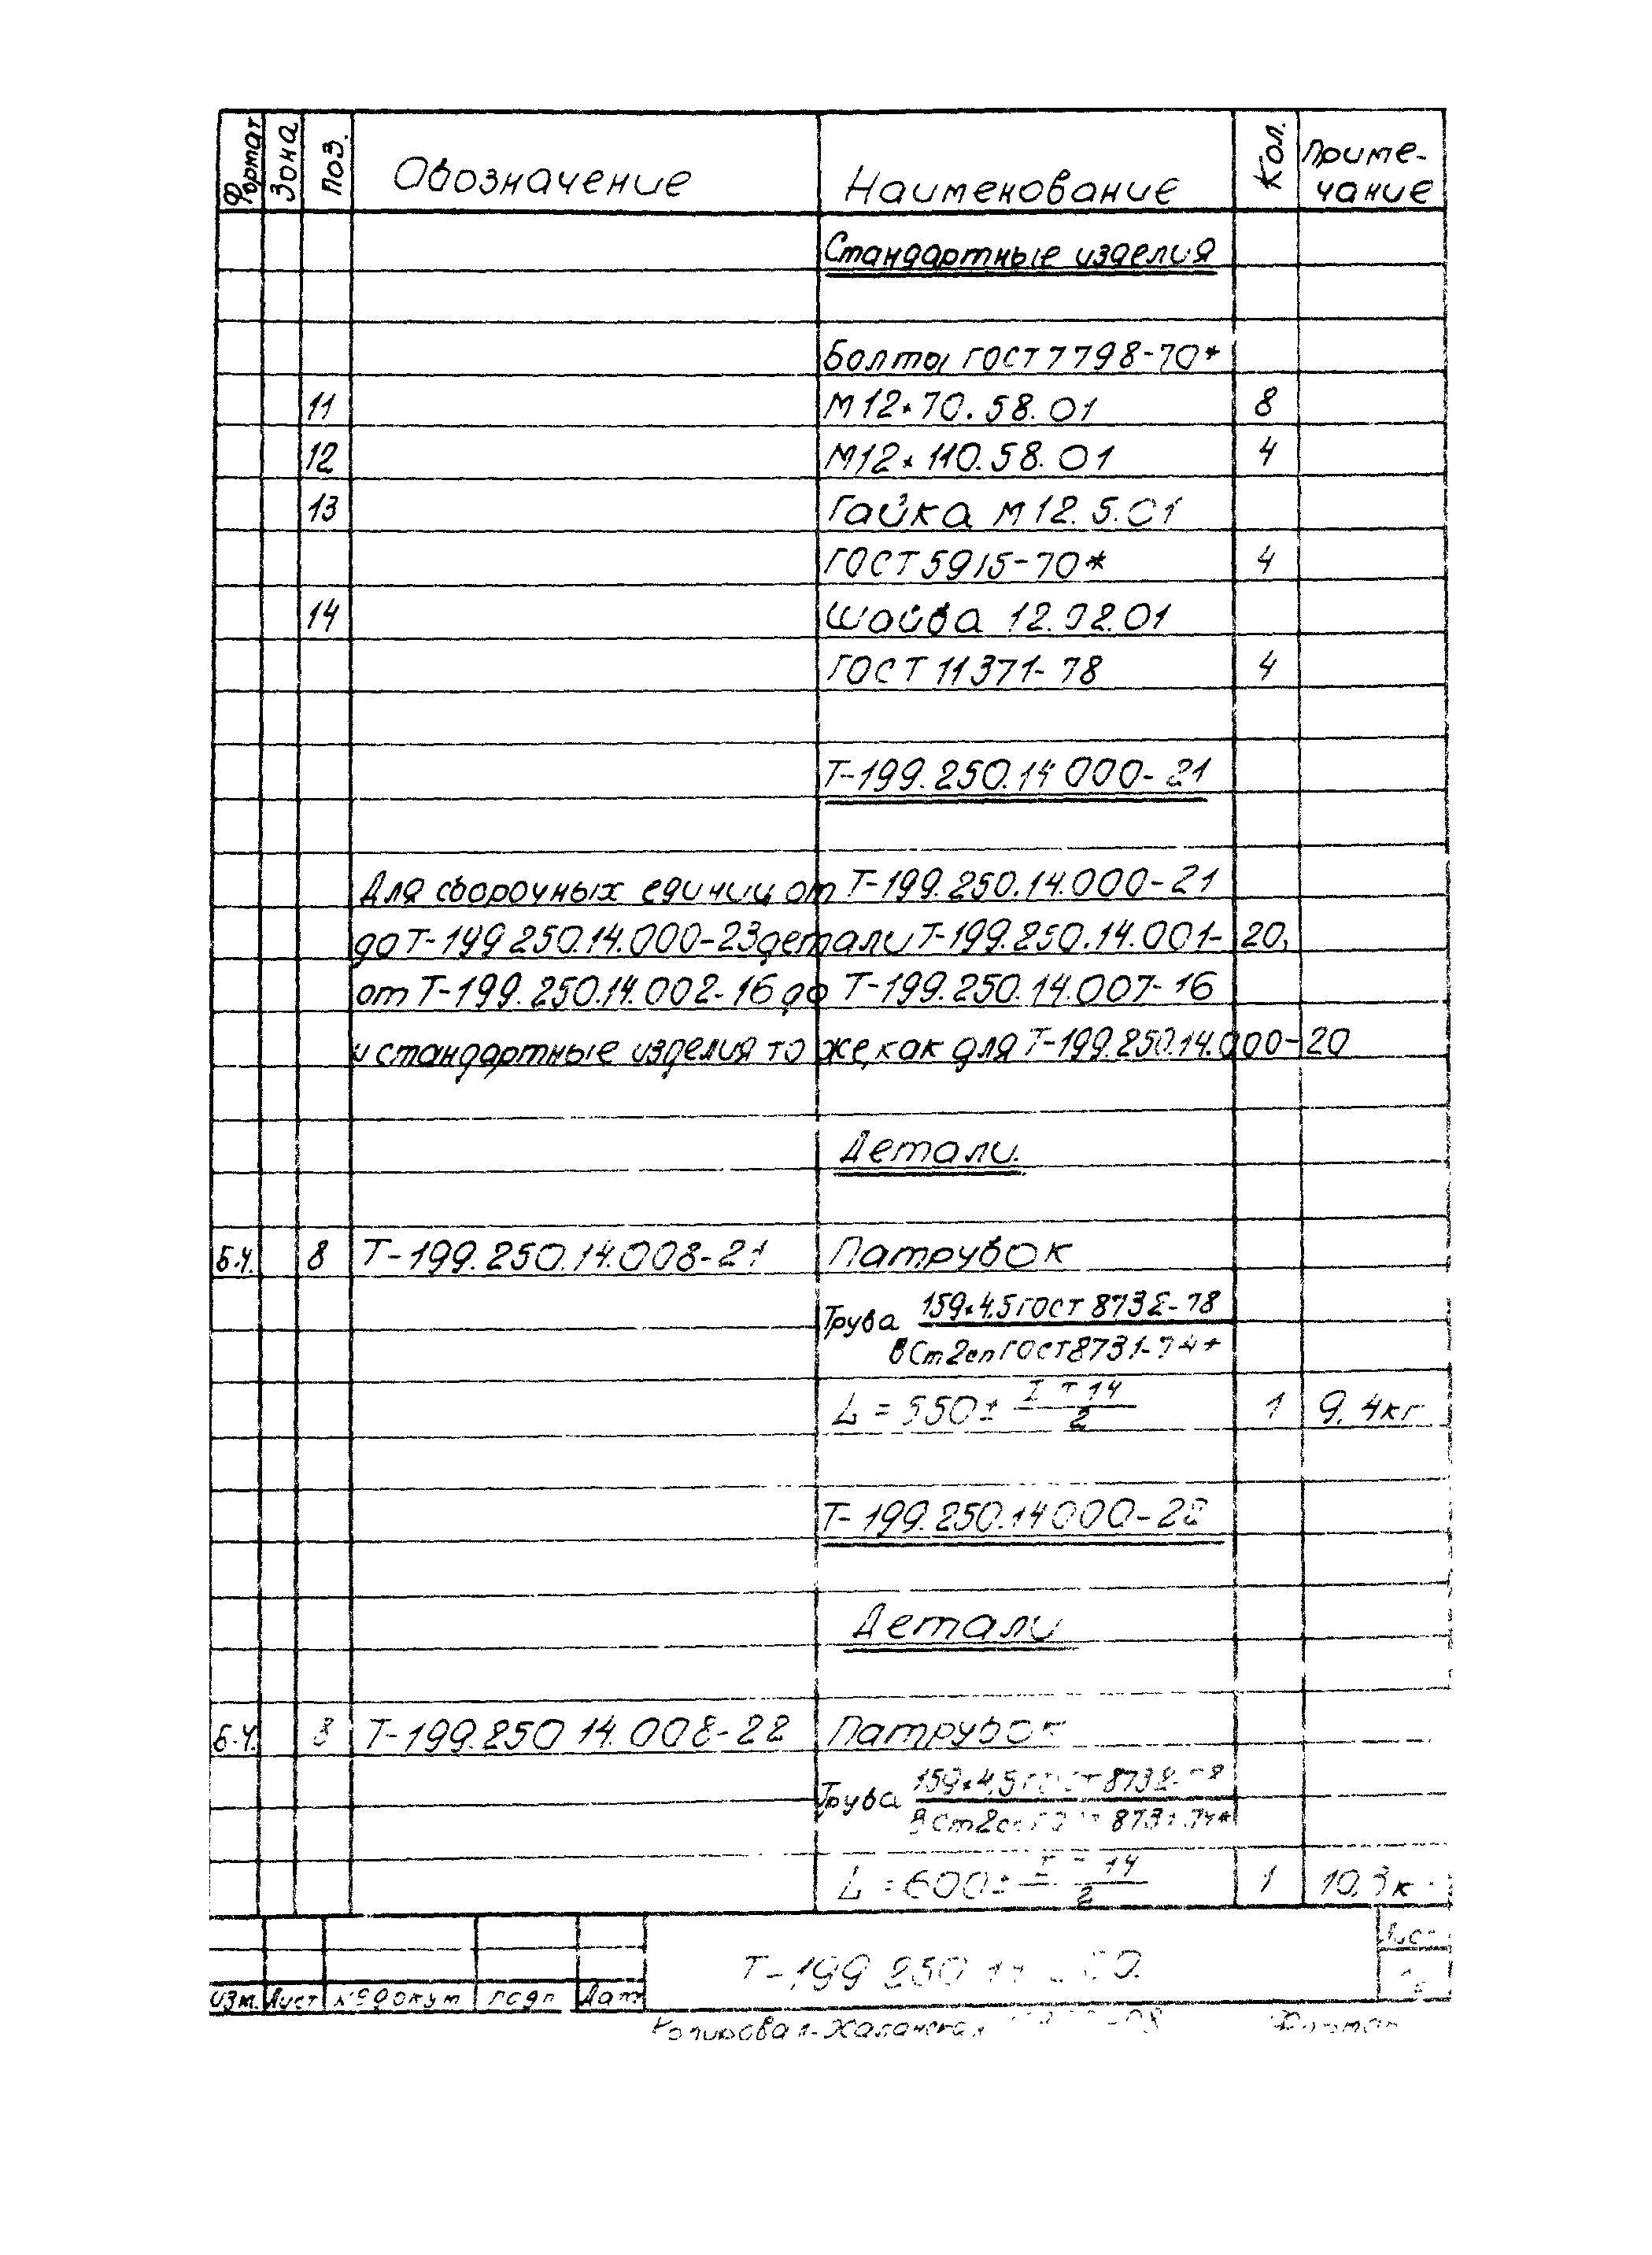 Формат Зона Поз. Обозначение Наименование Кол. Приме-чание
Стандартные изделия
Болты ГОСТ 7798-70*
11 М12×70.58.01 8
12 М12×110.58.01 4
13 Гайка М12.5.01
ГОСТ 5915-70* 4
14 Шайба 12.02.01
ГОСТ 11371-78 4
Т-199.250.14 000-21
Для сборочных единиц от Т-199.250.14.000-21
до Т-199 250.14.000-23 детали Т-199.250.14.001-20,
от Т-199.250.14.002-16 до Т-199.250.14.007-16
и стандартные изделия то же, как для Т-199.250.14.000-20
Детали.
Б.Ч. 8 Т-199.250.14.008-21 Патрубок
Труба 159×4,5 ГОСТ 8732-78
ВСт2сп ГОСТ 8731-74*
L = 550 ± IT14/2 1 9,4кг
Т-199.250.14 000-22
Детали
Б.Ч. 8 Т-199.250 14.008-22 Патрубок
Труба 159×4,5 ГОСТ 8732-78
ВСт2сп ГОСТ 8731-74*
L = 600 ± IT14/2 1 10,3к
Т-199 250 14
Лист
Изм. Лист № докум подп Дат
Копировал- Формат